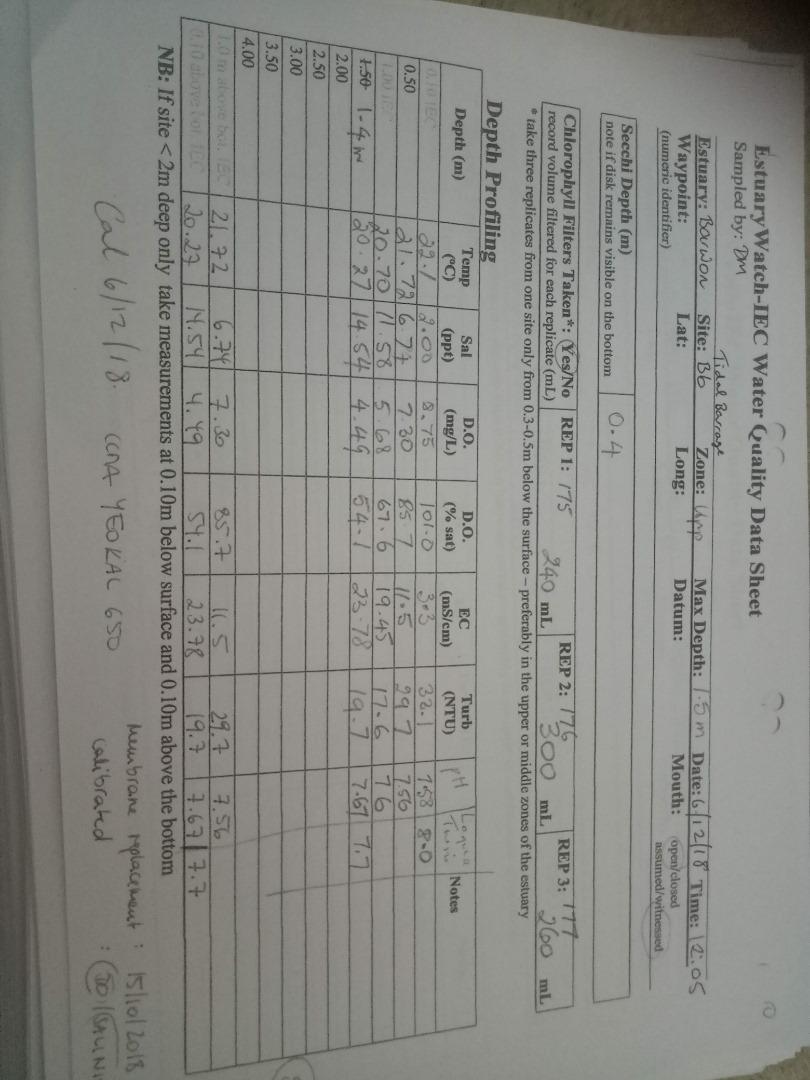 EstuaryWatch-IEC Water Quality Data Sheet
Sampled by: DM
Tidal Barrage
Estuary: Barwon Site: B6 Zone: Upp Max Depth: 1.5 m Date: 6/12/18 Time: 12.05
Waypoint: Lat: Long: Datum: Mouth: open/closed
(numeric identifier) assumed/witnessed
Secchi Depth (m) 0.4
note if disk remains visible on the bottom
Chlorophyll Filters Taken*: Yes/No REP 1: 175 REP 2: 176 REP 3: 177
record volume filtered for each replicate (mL) 240 mL 300 mL 260 mL
* take three replicates from one site only from 0.3-0.5m below the surface – preferably in the upper or middle zones of the estuary
Depth Profiling
Depth (m) Temp (°C) Sal (ppt) D.O. (mg/L) D.O. (% sat) EC (mS/cm) Turb (NTU) pH Notes
0.10 IEC 22.1 2.00 8.75 101.0 3.3 32.1 7.58 8.0
0.50 21.72 6.77 7.30 85.7 11.5 29.7 7.56
1.00 IEC 20.70 11.58 5.68 67.6 19.45 17.6 7.6
1.50 1.4m 20.27 14.54 4.49 54.1 23.78 19.7 7.67 7.7
2.00
2.50
3.00
3.50
4.00
1.0 m above bot. IEC 21.72 6.74 7.30 85.7 11.5 29.7 7.56
0.10 above bot. IEC 20.27 14.54 4.49 54.1 23.78 19.7 7.67 7.7
NB: If site < 2m deep only take measurements at 0.10m below surface and 0.10m above the bottom
Cal 6/12/18. CCMA YEOKAL 650
Membrane replacement : 15/10/2018
Calibrated :